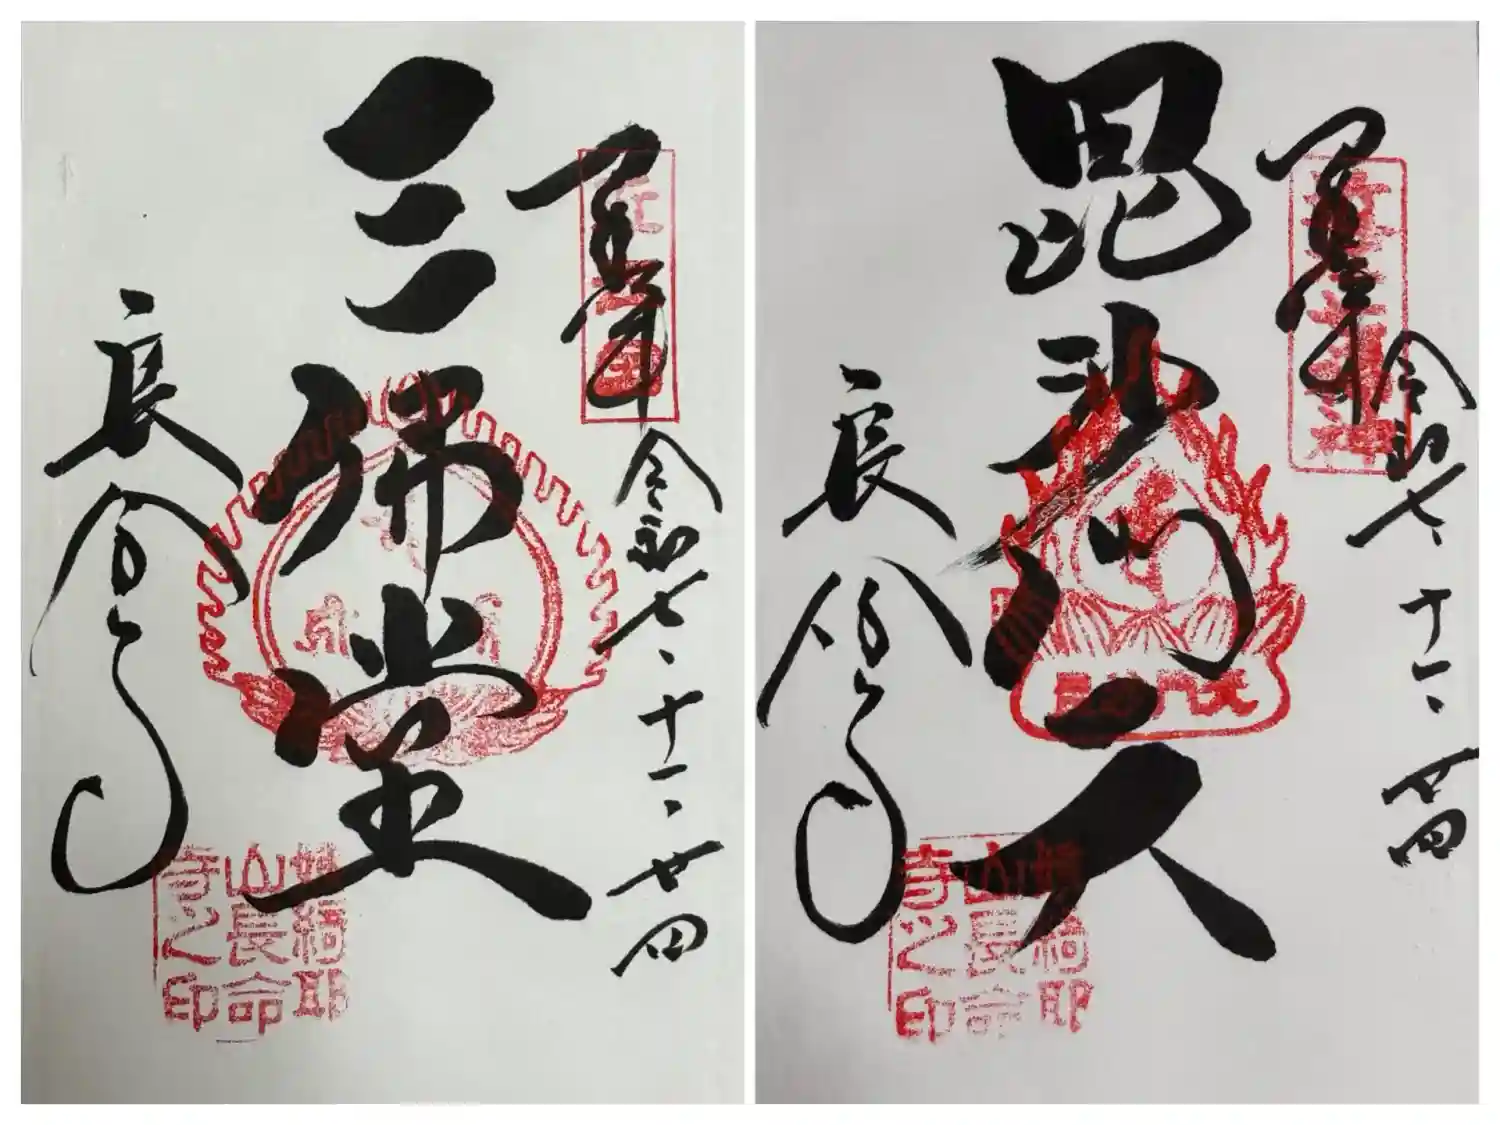 奉拝
令和七、十一、廿四
三佛堂
長命寺
姨綺耶
山長命
寺之印
奉拝
令和七、十一、廿四
毘沙門天
長命寺
姨綺耶
山長命
寺之印